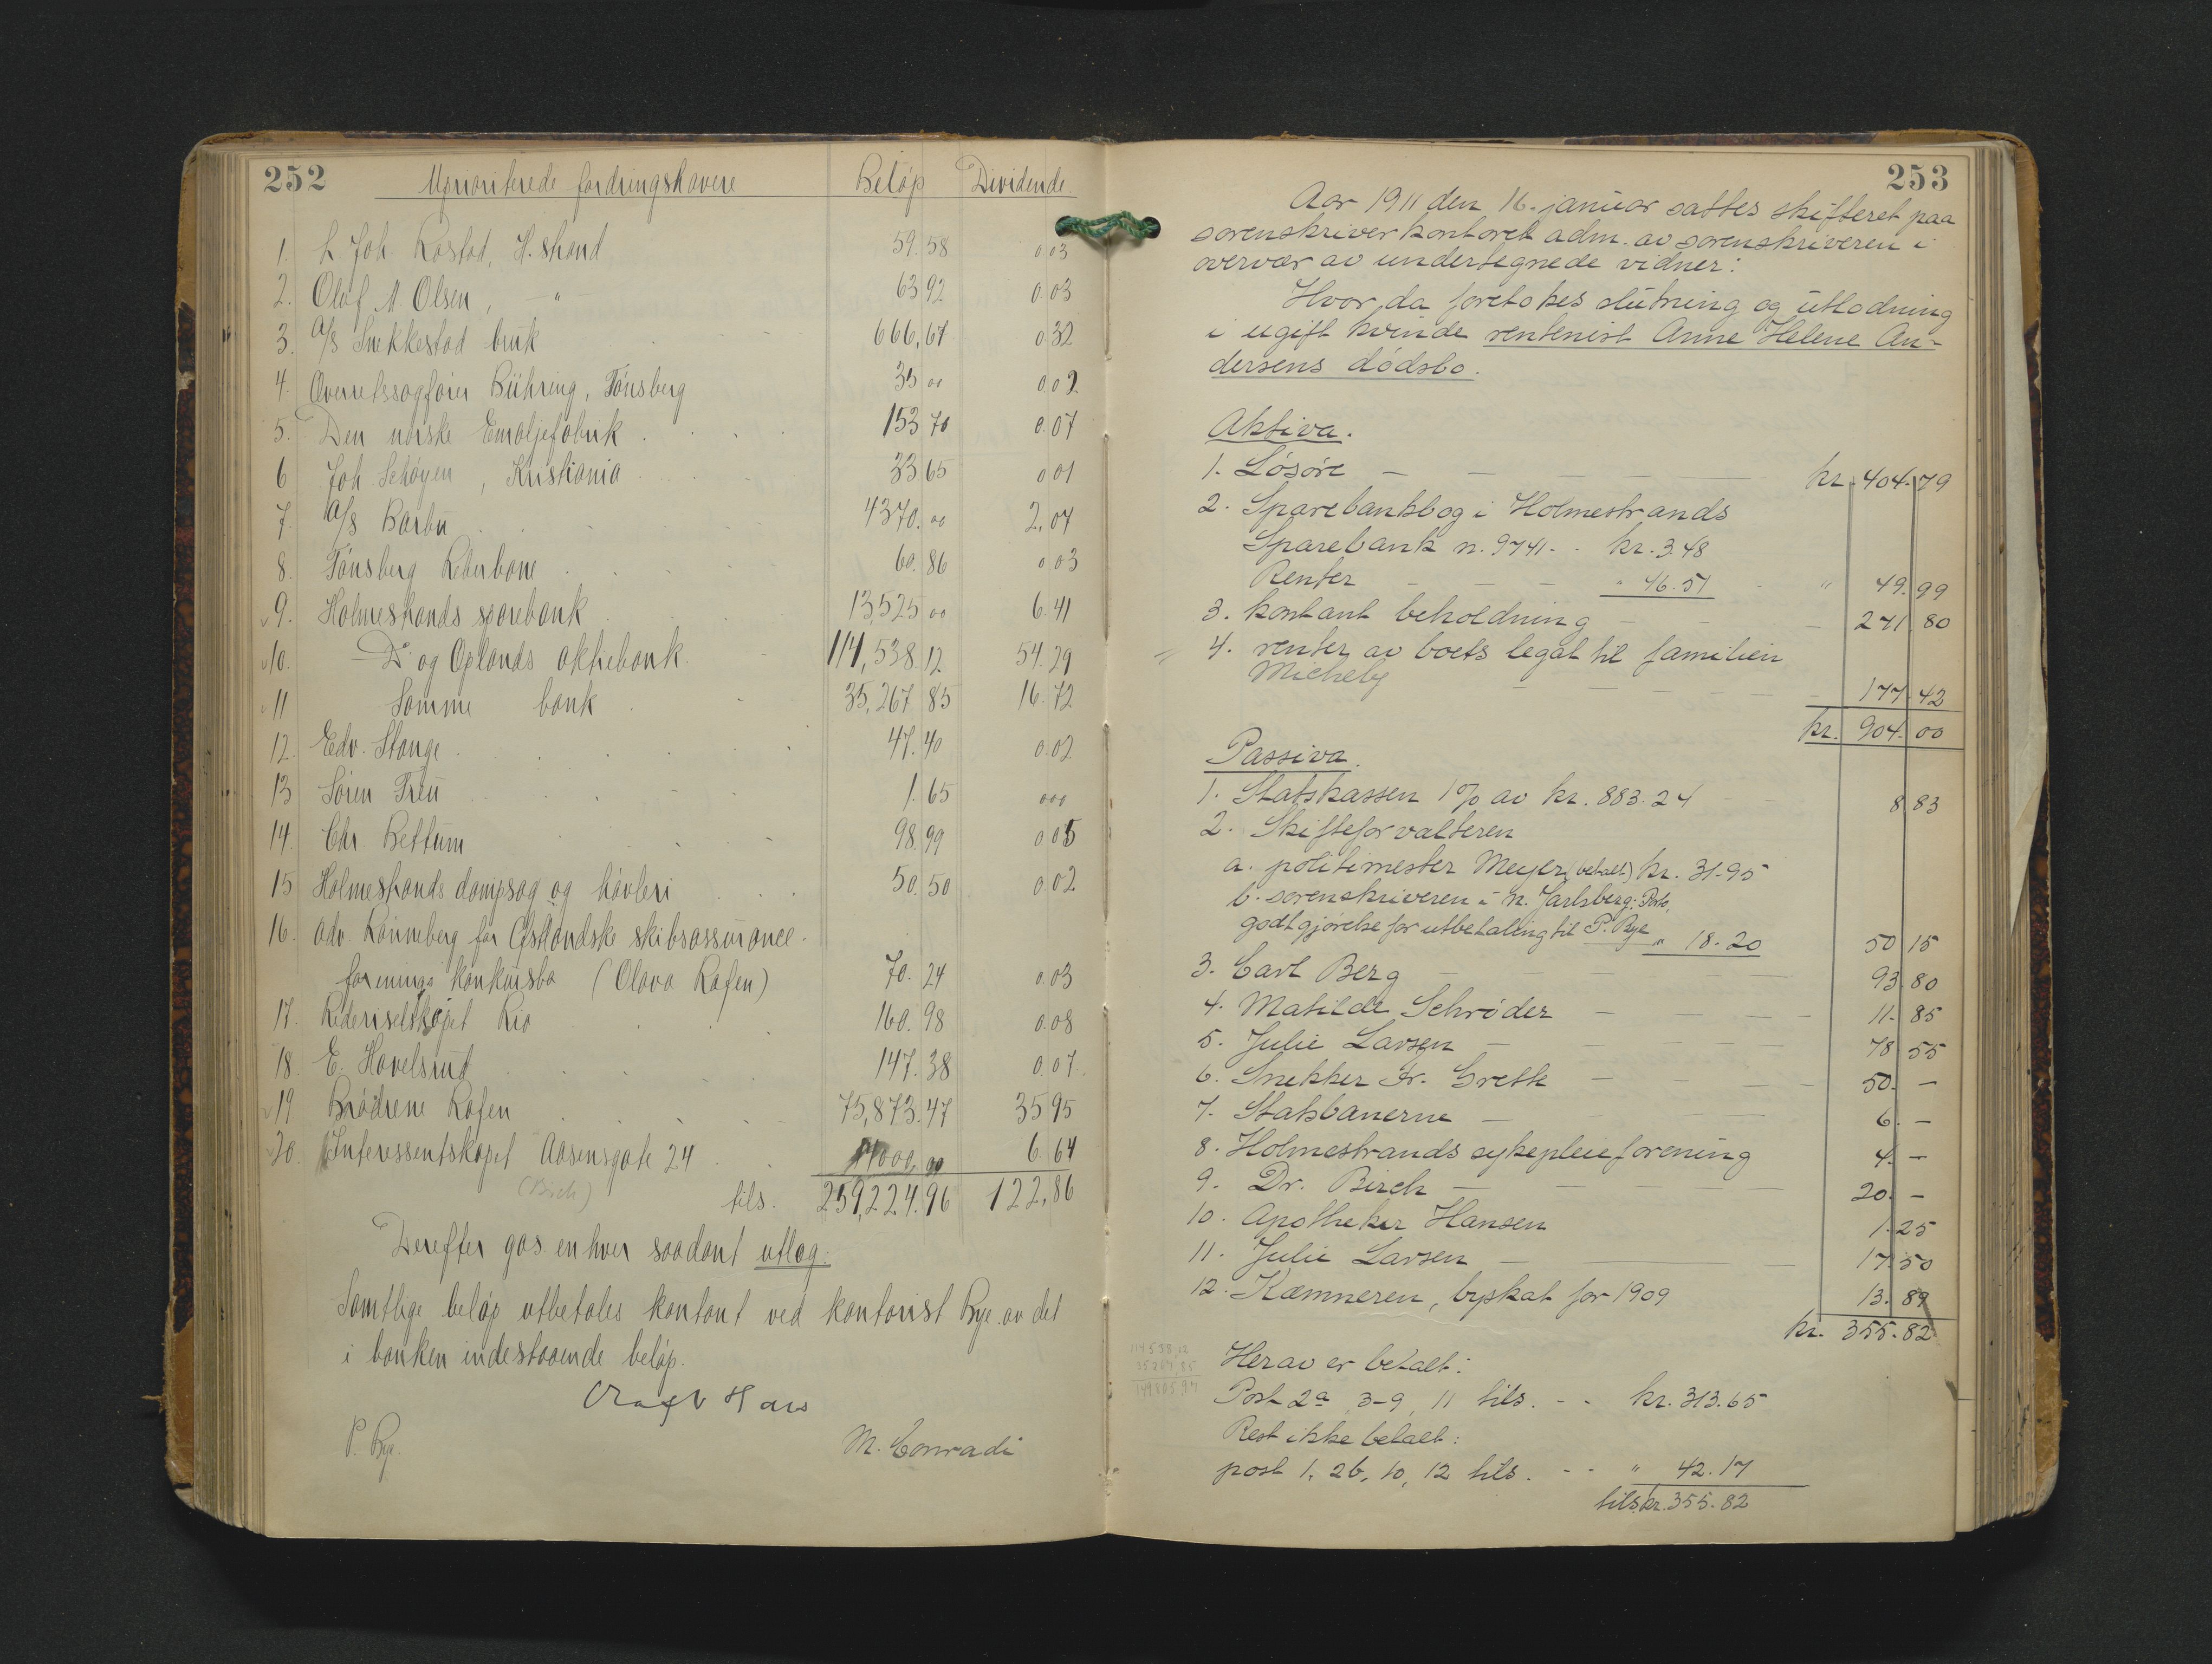 252
Uprioriterede fordringshavere Beløp Dividende
1. L. Joh. Rostad, H.strand 59.58 0.03
2. Oluf M. Olsen, — " — 63 92 0.03
3. A/S Snekkestad bruk 666,67 0.32
4. Overretssagfører Bühring, Tönsberg 35 00 0.02
5. Den norske Emaljefabrik 153 70 0.07
6 Joh Schøyen, Kristiania 33 65 0 01
7. A/S Barbu 4370.00 2,07
8. Tönsberg Reberbane 60.86 0 03
9. Holmestrands sparebank 13,525 00 6.41
10. — D° og Oplands aktiebank. 114,538.12 54.29
11 Samme bank 35,267 85 16.72
12. Edv. Stange 47.40 0.02
13 Sören Treu 1.65 000
14. Chr. Rettum 98.99 0.05
15 Holmestrands dampsag og høvleri 50.50 0.02
16. Adv. Rönneberg for Østlandske skibsassurance-
forenings konkursbo (Olava Rafen) 70.24 0.03
17. Rederiselskapet Rio 160.98 0.08
18. E. Havelsrud 147.38 0.07
19 Brødrene Rafen 75,873.47 35 95
20. Interessentskapet Aasensgate 24 14000,00 6.64
(Birch)
tils. 259,224.96 122,86
Derefter gas enhver saadant utlæg:
Samtlige beløp utbetales kontant ved kontorist Rye av det
i banken indestaaende beløp.
P. Rye. M. Conradi
253
Aar 1911 den 16. januar sattes skifteret paa
sorenskriverkontoret adm. av sorenskriveren i
overvær av undertegnede vidner:
Hvor da foretokes slutning og utlodning
i ugift kvinde rentenist Anne Helene An-
dersens dødsbo.
Aktiva.
1. Løsøre — — — kr. 404.79
2. Sparebankbog i Holmestrands
Sparebank n. 9741. - kr. 3.48
Renter — — — " 46.51 " 49.99
3. kontant beholdning — — — 271.80
4. renter av boets legat til familien
Michely — — — — 177.42
kr. 904.00
Passiva.
1. Statskassen 1% av kr. 883.24 8 83
2. Skifteforvalteren
a. politimester Meyer (betalt) kr. 31.95
b. sorenskriveren i n. Jarlsberg: Porto,
godtgjørelse for utbetaling til P. Rye " 18.20 50 15
3. Carl Berg — — — 93.80
4. Matilde Schrøder — — — 11.85
5. Julie Larsen — — — 78 55
6. Snekker Fr. Grette — — — 50. —
7. Statsbanerne — — 6. —
8. Holmestrands sykepleieforening 4. —
9. Dr. Birch — — — 20. —
10. Apotheker Hansen 1.25
11. Julie Larsen — — — 17.50
12. Kæmneren, byskat for 1909 13.89
kr. 355.82
114538,12
35267,85
149805,97
Herav er betalt:
Post 2a, 3-9, 11 tils. - - kr. 313.65
Rest ikke betalt:
post 1, 2b, 10, 12 tils. - - " 42.17
tils. kr. 355.82